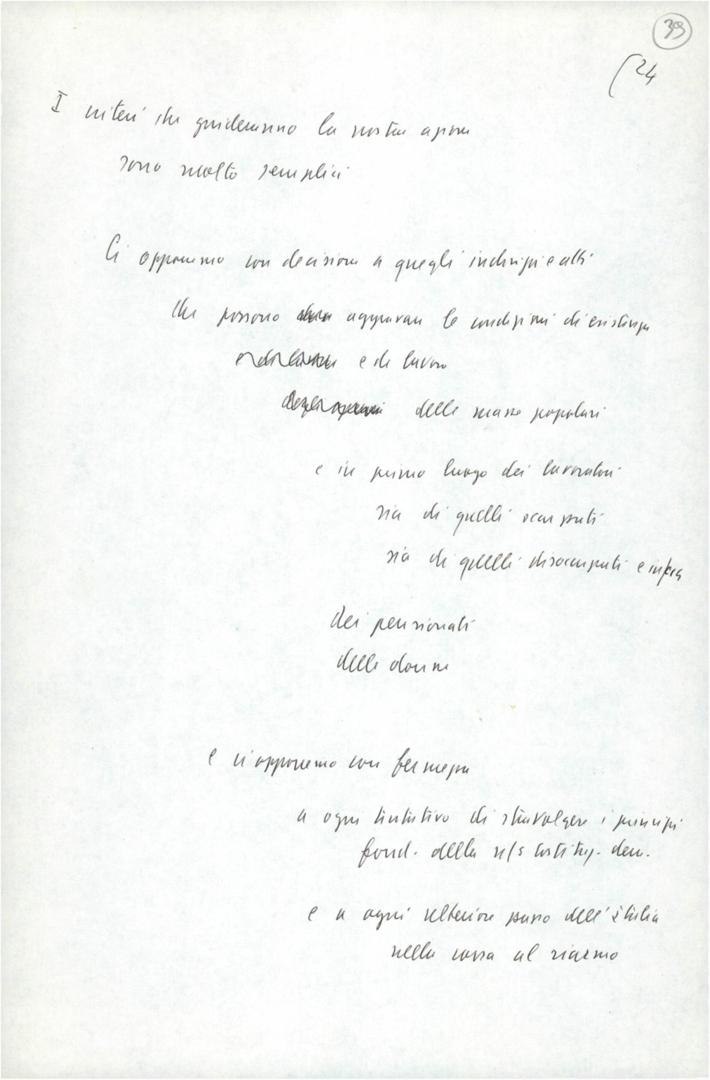 39
24
I criteri che guideranno la nostra azione
sono molto semplici
Ci opporremo con decisione a quegli indirizzi e atti
che possono aggravare le condizioni di esistenza
e di lavoro
delle masse popolari
e in primo luogo dei lavoratori
sia di quelli occupati
sia di quelli disoccupati e in
dei pensionati
delle donne
e ci opporremo con fermezza
a ogni tentativo di stravolgere i principi
fond. della n/s costituz. dem.
e a ogni ulteriore passo dell'Italia
nella corsa al riarmo